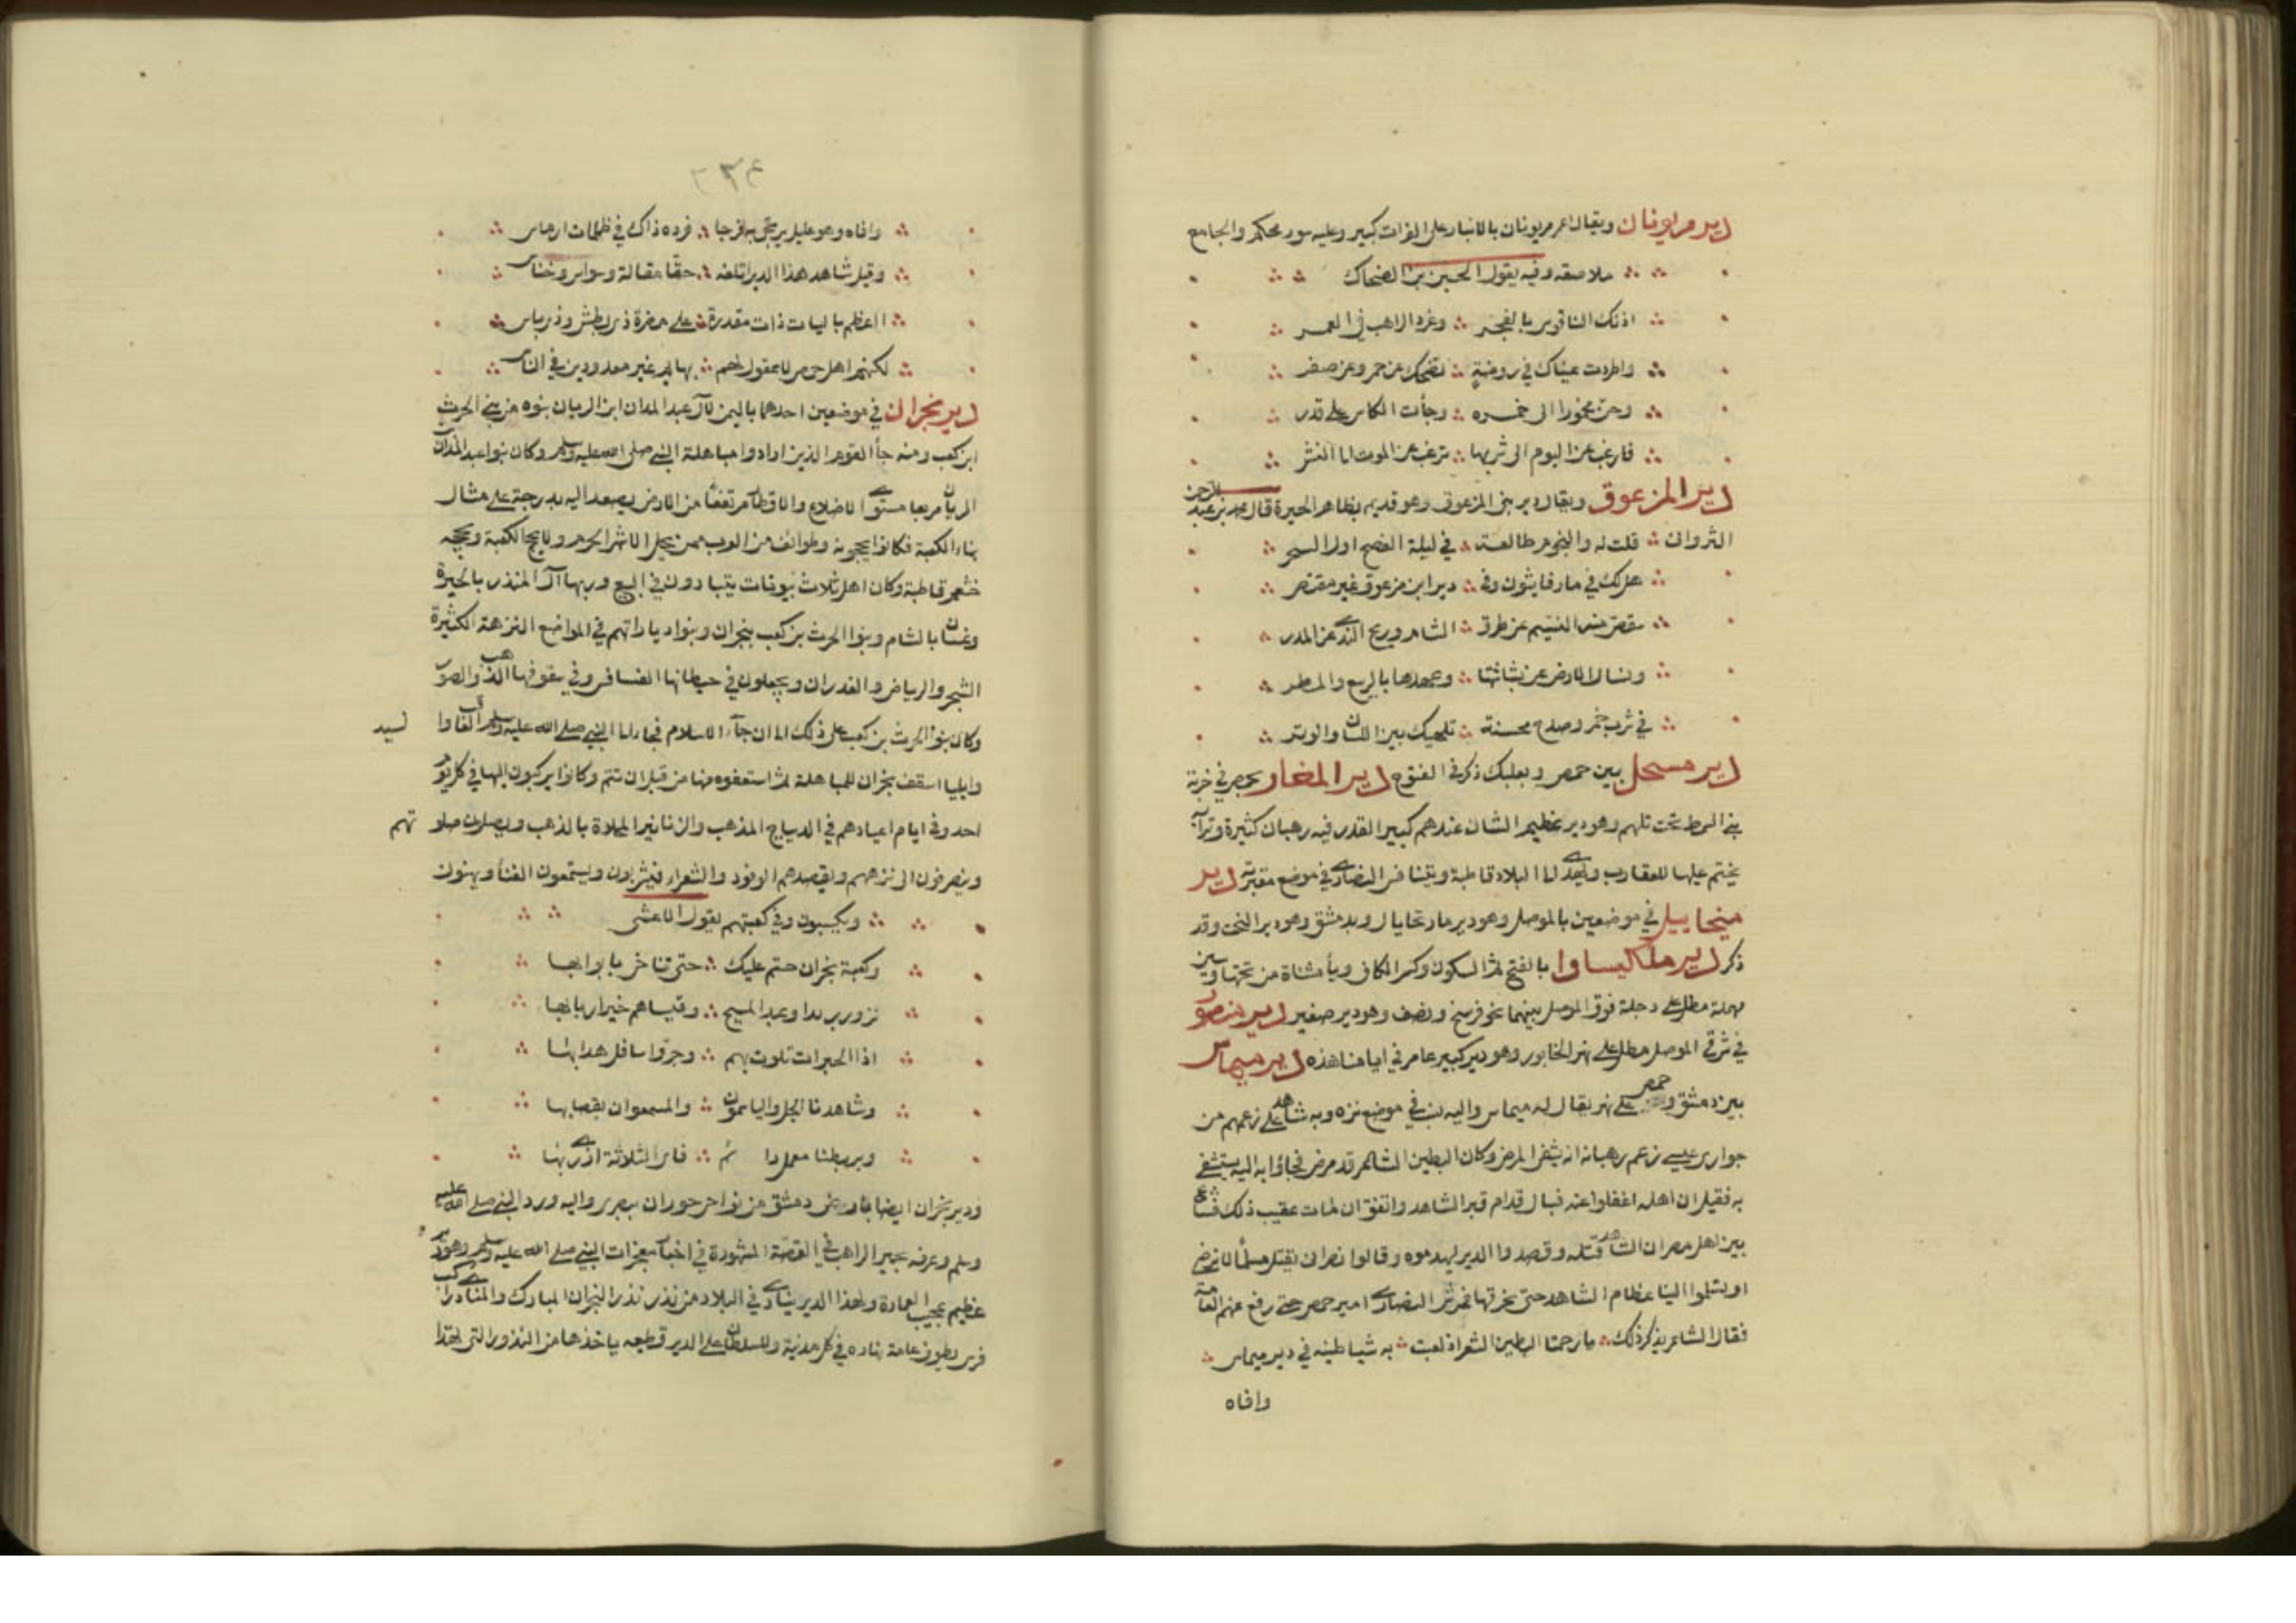 دير مر يونان ويقال عمر مر يونان بالانبار على الفرات كبير وعليه سور محكم والجامع
ملاصقه وفيه يقول الحسين بن الضحاك
اذنك الناقوس بالفجر وغرد الراهب في العمر
واطردت عيناك في روضة تضحك عن حمر وعن صفر
وحن مخمورا الى خمره وجأت الكاس على قدر
فارغب عن اليوم الى شربها ترغب عن الموت الى النشر
دير المزعوق ويقال دير بنى المزعوق وهو قديم بظاهر الحيرة قال محمد بن عبد الرحمن
الثروانى قلت له والنجوم طالعة في ليلة الفصح اول السحر
هل لك في مار فايثون وفي دير ابن مزعوق غير مقتصر
يقتص منه النسيم عن طرق الشام وريح الندى عن المدر
ونسال الارض عن بشاشتها وعهدها بالربيع والمطر
في شرب خمر وصدع محسنة تلهيك بين اللسان والوتر
دير مسحل بين حمص وبعلبك ذكر في الفتوح دير المغان بحمص في خربة
بني السمط تحت تلهم وهو دير عظيم الشان عندهم كبير القدر فيه رهبان كثيرة وترابه
يختم عليها للعقارب ويهدى الى البلاد قاطبة ويتنافس النصارى في موضع مقبرته دير
ميخاييل في موضعين بالموصل وهو دير مار نحايال وبدمشق وهو دير البخت وقد
ذكر دير ملكيساوا بالفتح ثم السكون وكسر الكاف ويأ مثناة من تحتها وسين
مهملة مطل على دجلة فوق الموصل بينهما نحو فرسخ ونصف وهو دير صغير دير منصور
في شرقي الموصل مطل على نهر الخابور وهو دير كبير عامر في ايامنا هذه دير ميماس
بين دمشق وحمص على نهر يقال له ميماس واليه نسب في موضع نزه وبه شاهد على زعمهم من
حواري عيسى زعم رهبانه انه يشفى المرضى وكان البطين الشاعر قد مرض فجاؤا به اليه يستشفى
به فقيل ان اهله اغفلوا عنه فبال قدام قبر الشاهد واتفق ان مات عقيب ذلك فشاع
بين اهل حمص ان الشاهد قتله وقصدوا الدير ليهدموه وقالوا نصرانى يقتل مسلما لا نرضى
او يسلموا الينا عظام الشاهد حتى نحرقها فرشى النصارى امير حمص حتى رفع عنهم العامة
فقال الشاعر يذكر ذلك يا رحمتا البطين الشعر اذ لعبت به شياطينه في دير ميماس
وافاه
٢٣٤
وافاه وهو عليل يرتجى به فرجا فرده ذاك في ظلمات ارماس
وقيل شاهد هذا الدير اتلفه حقا مقالة وسواس وخناس
ااعظم باليات ذات مقدرة على مضرة ذي بطش وذي باس
لكنهم اهل حمص لا عقول لهم بهايم غير معدودين في الناس
دير نجران في موضعين احدهما باليمن لآل عبد المدان ابن الديان بنوه من بني الحرث
ابن كعب ومنه جأ القوم الذين ارادوا مباهلة النبي صلى الله عليه وسلم وكان بنوا عبد المدان
الديان مربعا مستوى الاضلاع والاقطار مرتفعا من الارض يصعد اليه بدرجة على مثال
بناء الكعبة فكانوا يحجونه وطوائف من العرب ممن يحل الاشهر الحرم ولا يحج الكعبة ويحجه
خثعم قاطبة وكان اهل ثلاث بيوتات يتبارون في البيع وربها آل المنذر بالحيرة
وغسان بالشام وبنوا الحرث بن كعب بنجران وبنوا دياراتهم في المواضع النزهة الكثيرة
الشجر والرياض والغدران ويجعلون في حيطانها الفسافس وفي سقوفها الذهب والصور
وكان بنوا الحرث بن كعب على ذلك الى ان جآء الاسلام فجاء الى النبي صلى الله عليه وسلم العاقب والسيد
وايليا اسقف نجران للمباهلة ثم استعفوه منها من قبل ان تتم وكانوا يركبون اليها في كل يوم
احد وفي ايام اعيادهم في الديباج المذهب والزنانير المحلاة بالذهب ويصلون صلو تهم
وينصرفون الى نزههم ويقصدهم الوفود والشعراء فيشربون ويستمعون الغنأ ويهنون
ويكسبون وفي كعبتهم يقول الاعشى
وكعبة نجران حتم عليك حتى تناخي بابوابها
نزور يزيدا وعبد المسيح وقيسا هم خير اربابها
اذا الحبرات تلوت بهم وجروا اسافل هدابها
وشاهدنا الجل والياسمون والمسمعات بقصابها
وبربطنا معمل دائم فاي الثلاثة ازرى بها
ودير نجران ايضا بارض دمشق من نواحي حوران ببصرى واليه ورد النبي صلى الله عليه
وسلم وعرفه بحير الراهب في القصة المشهورة في اخبار معجزات النبي صلى الله عليه وسلم وهو دير
عظيم عجيب العمارة ولهذا الدير ينادى في البلاد من نذر نذرا لنجران المبارك والمنادى راكب
فرس يطوف عامة نهاره في كل مدينة وللسلطان على الدير قطيعه ياخذها من النذور التي تهدا